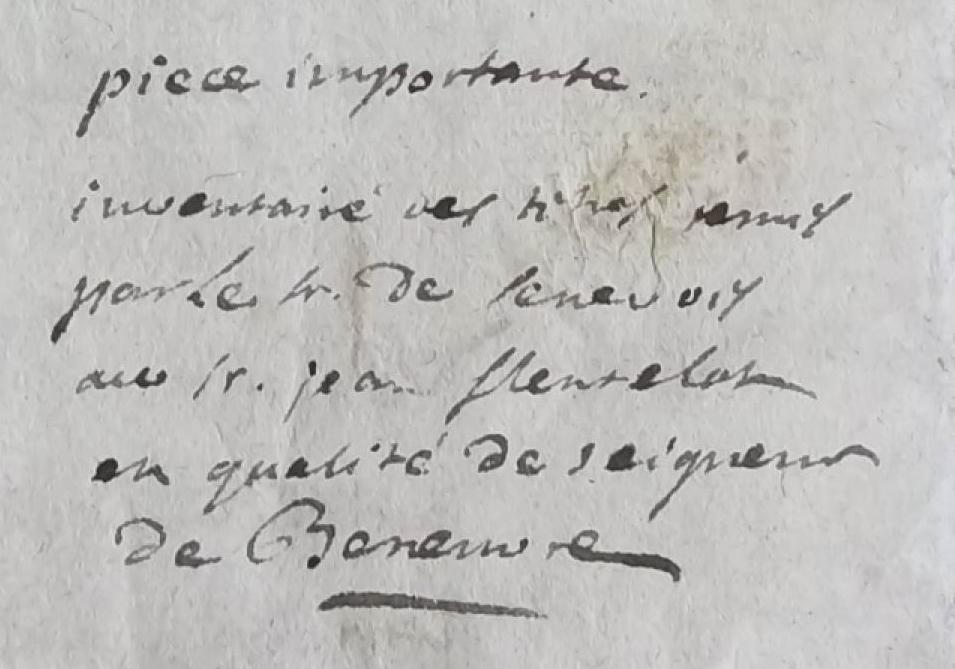 piece importante.
inventaire des titres remis
par le sr. de senevois
au sr. jean fleutelot
en qualité de seigneur
de Beneuvre